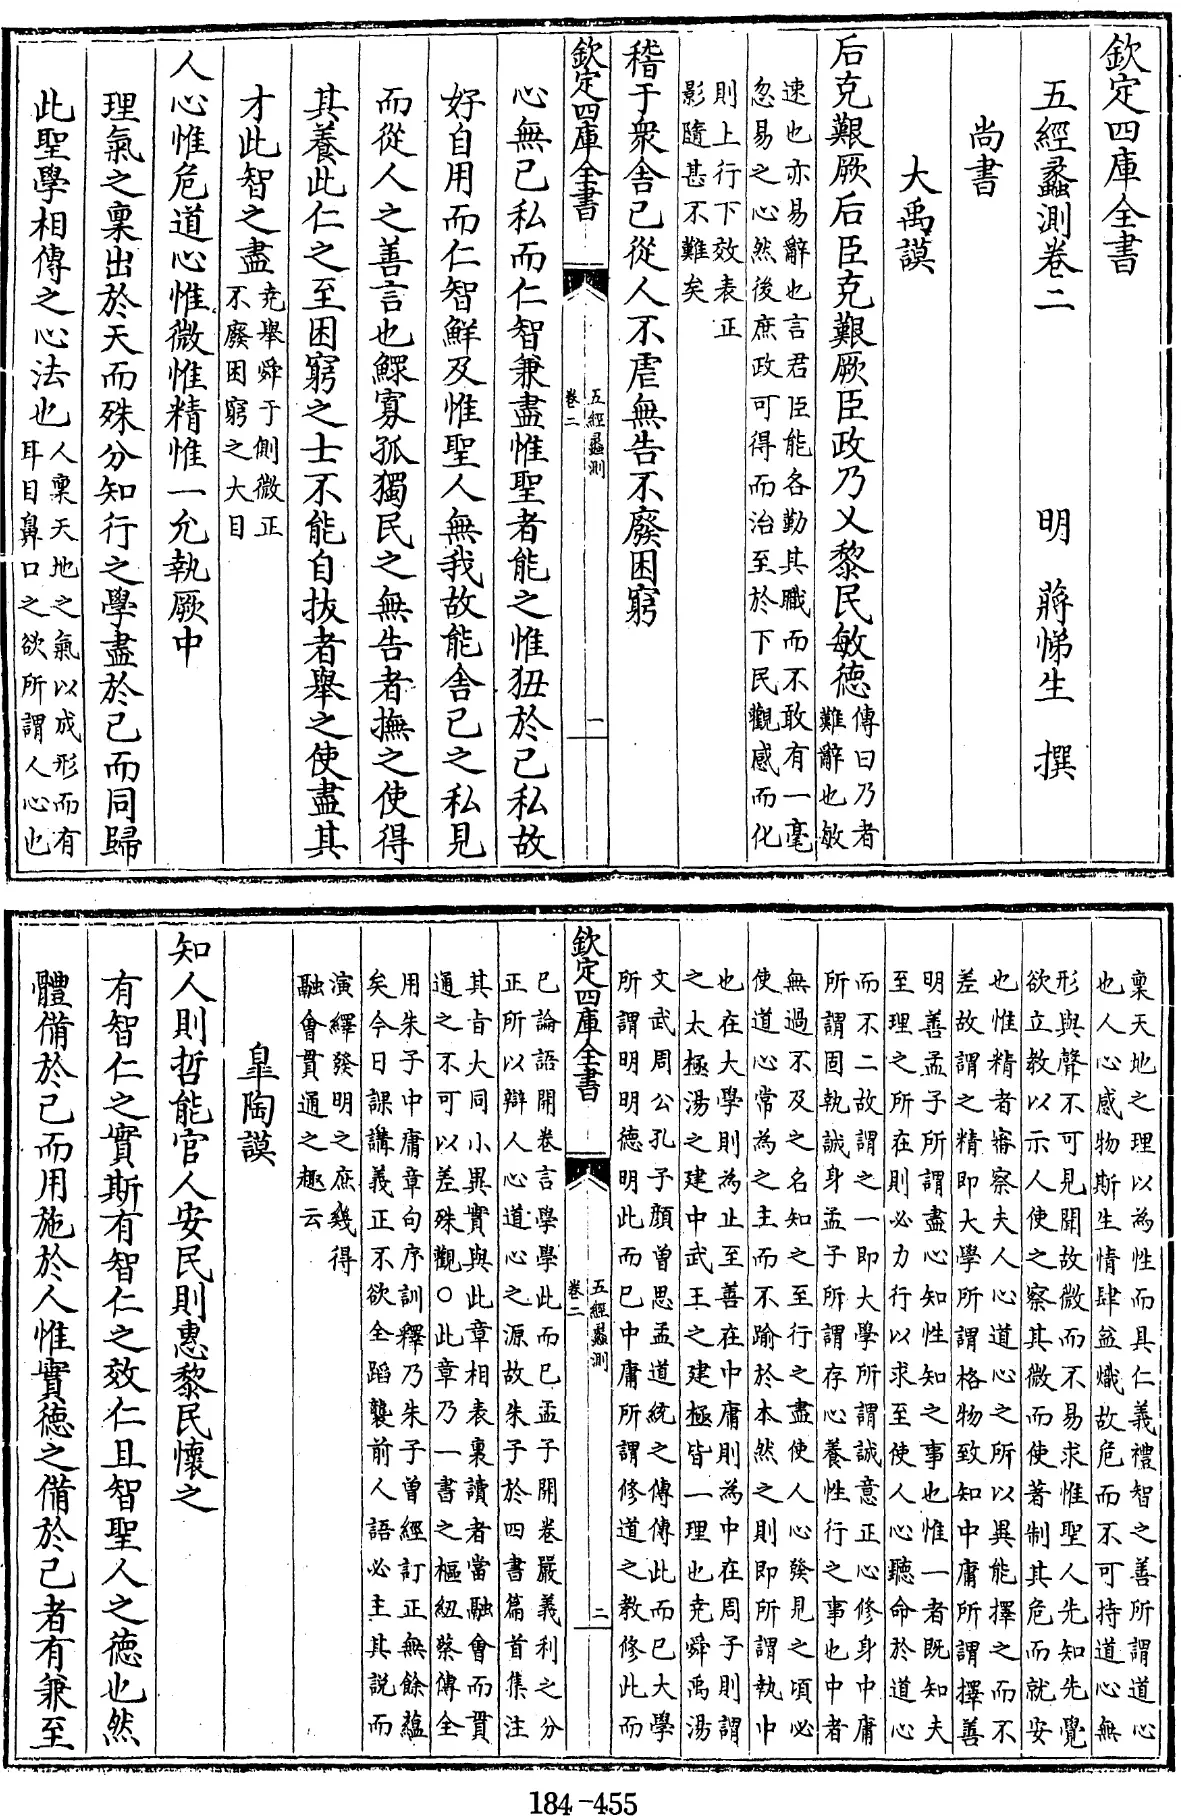 欽定四庫全書
五經蠡測卷二
明 蔣悌生 撰
尚書
大禹謨
后克艱厥后臣克艱厥臣政乃乂黎民敏德
傳曰乃者
難辭也敏
速也亦易辭也言君臣能各勤其職而不敢有一毫
忽易之心然後庶政可得而治至於下民觀感而化
則上行下效表正
影隨甚不難矣
稽于衆舍己從人不虐無告不廢困窮
欽定四庫全書
五經蠡測
卷二
一
心無己私而仁智兼盡惟聖者能之惟狃於己私故
好自用而仁智鮮及惟聖人無我故能舍己之私見
而從人之善言也鰥寡孤獨民之無告者撫之使得
其養此仁之至困窮之士不能自拔者舉之使盡其
才此智之盡
堯舉舜于側微正
不廢困窮之大目
人心惟危道心惟微惟精惟一允執厥中
理氣之稟出於天而殊分知行之學盡於己而同歸
此聖學相傳之心法也
人稟天地之氣以成形而有
耳目鼻口之欲所謂人心也
稟天地之理以為性而具仁義禮智之善所謂道心
也人心感物斯生情肆益熾故危而不可持道心無
形與聲不可見聞故微而不易求惟聖人先知先覺
欲立教以示人使之察其微而使著制其危而就安
也惟精者審察夫人心道心之所以異能擇之而不
差故謂之精即大學所謂格物致知中庸所謂擇善
明善孟子所謂盡心知性知之事也惟一者既知夫
至理之所在則必力行以求至使人心聽命於道心
而不二故謂之一即大學所謂誠意正心修身中庸
所謂固執誠身孟子所謂存心養性行之事也中者
無過不及之名知之至行之盡使人心發見之頃必
使道心常為之主而不踰於本然之則即所謂執中
也在大學則為止至善在中庸則為中在周子則謂
之太極湯之建中武王之建極皆一理也堯舜禹湯
文武周公孔子顏曾思孟道統之傳傳此而已大學
所謂明明德明此而已中庸所謂修道之教修此而
欽定四庫全書
五經蠡測
卷二
二
已論語開卷言學學此而已孟子開卷嚴義利之分
正所以辯人心道心之源故朱子於四書篇首集注
其旨大同小異實與此章相表裏讀者當融會而貫
通之不可以差殊觀○此章乃一書之樞紐蔡傳全
用朱子中庸章句序訓釋乃朱子曾經訂正無餘蘊
矣今日課講義正不欲全蹈襲前人語必主其說而
演繹發明之庶幾得
融會貫通之趣云
臯陶謨
知人則哲能官人安民則惠黎民懷之
有智仁之實斯有智仁之效仁且智聖人之德也然
體備於己而用施於人惟實德之備於己者有兼至
184-455